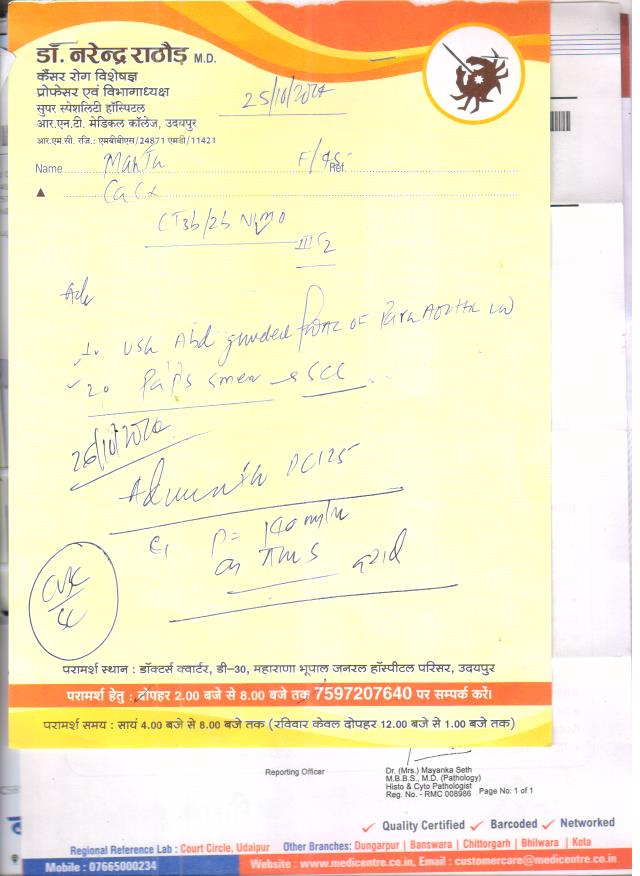 डॉ. नरेन्द्र राठौड़ M.D.
कैंसर रोग विशेषज्ञ
प्रोफेसर एवं विभागाध्यक्ष
सुपर स्पेशलिटी हॉस्पिटल
आर.एन.टी. मेडिकल कॉलेज, उदयपुर
आर.एम.सी. रजि.: एमबीबीएस/24871 एमडी/11421
25/10/2024
Name Manju F/45 Ref.
Ca Cx
CT3b/2b N1M0
III C2
Adv
1. USG Abd guided FNAC OF PARA AORTIC LN
2. Pap's smear SCC
26/10/2024
Admit
P= 140 m/m
CVBC
परामर्श स्थान : डॉक्टर्स क्वार्टर, डी-30, महाराणा भूपाल जनरल हॉस्पीटल परिसर, उदयपुर
परामर्श हेतु : दोपहर 2.00 बजे से 8.00 बजे तक 7597207640 पर सम्पर्क करें।
परामर्श समय : सायं 4.00 बजे से 8.00 बजे तक (रविवार केवल दोपहर 12.00 बजे से 1.00 बजे तक)
Reporting Officer
Dr. (Mrs.) Mayanka Seth
M.B.B.S., M.D. (Pathology)
Histo & Cyto Pathologist
Reg. No. - RMC 008986 Page No: 1 of 1
Quality Certified Barcoded Networked
Regional Reference Lab : Court Circle, Udaipur Other Branches: Dungarpur | Banswara | Chittorgarh | Bhilwara | Kota
Mobile : 07665000234 Website : www.medicentre.co.in, Email : customercare@medicentre.co.in